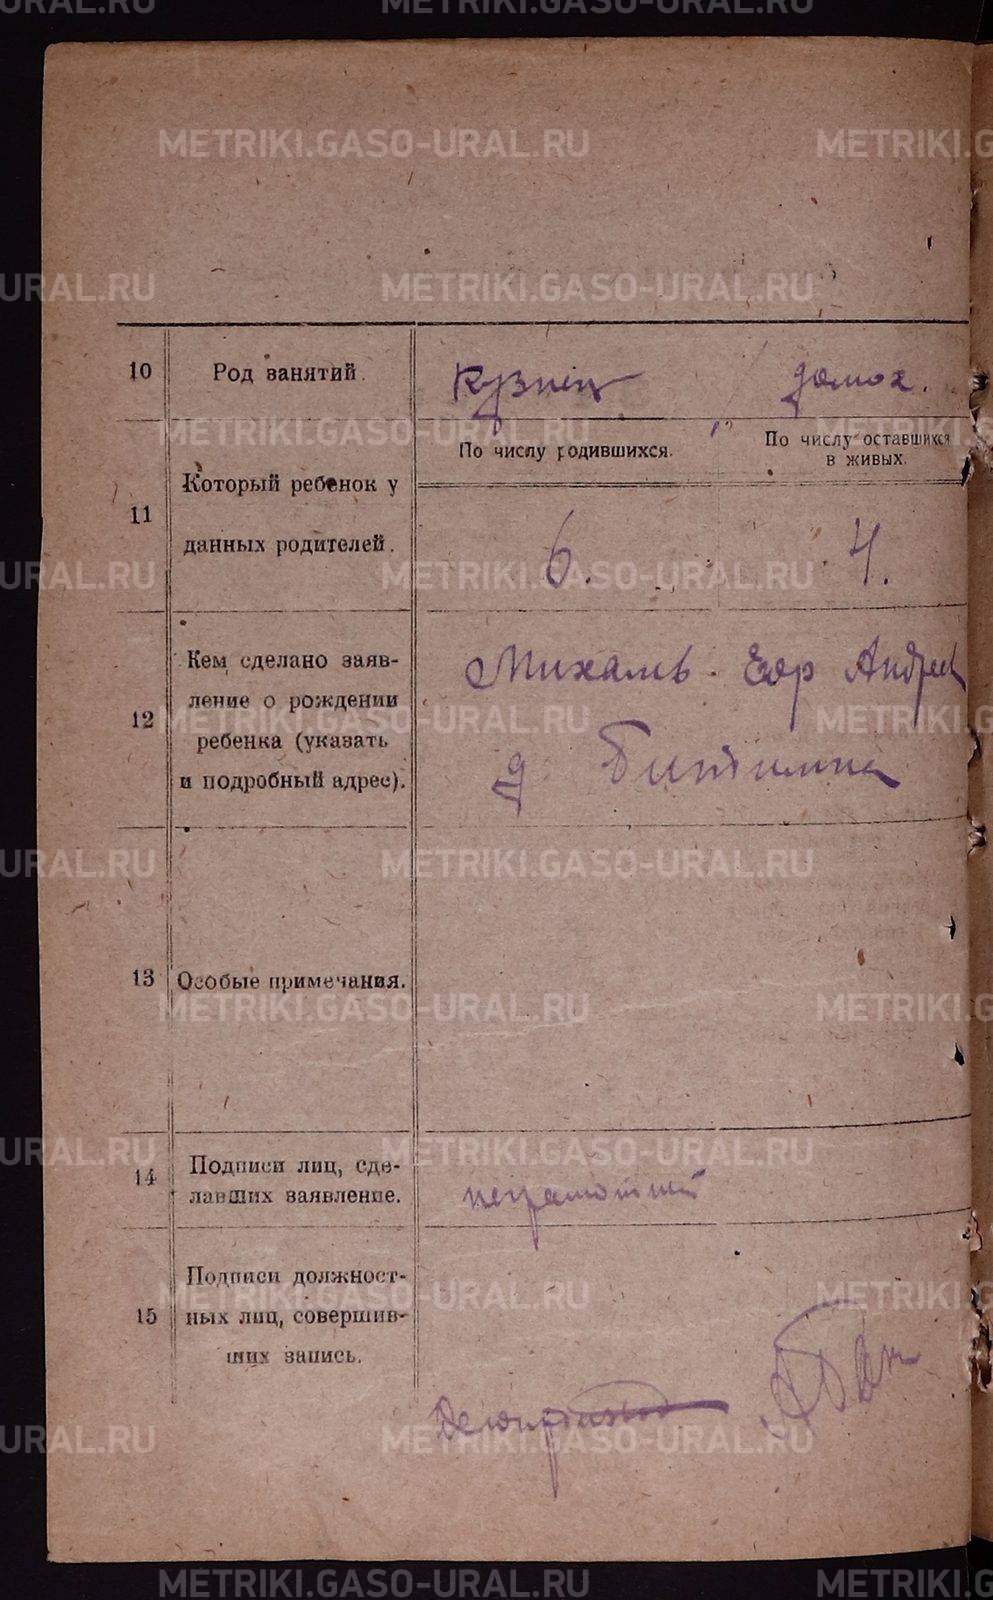 METRIKI.GASO-URAL.RU
10 Род занятий. Кузнец домох.
11 Который ребенок у данных родителей.
По числу родившихся. По числу оставшихся в живых.
6. 4.
12 Кем сделано заяв-
ление о рождении
ребенка (указать
и подробный адрес).
Егор Андрее
д
13 Особые примечания.
14 Подписи лиц, сде-
лавших заявление.
неграмотный
15 Подписи должност-
ных лиц, совершив-
ших запись.
Делопроизвод